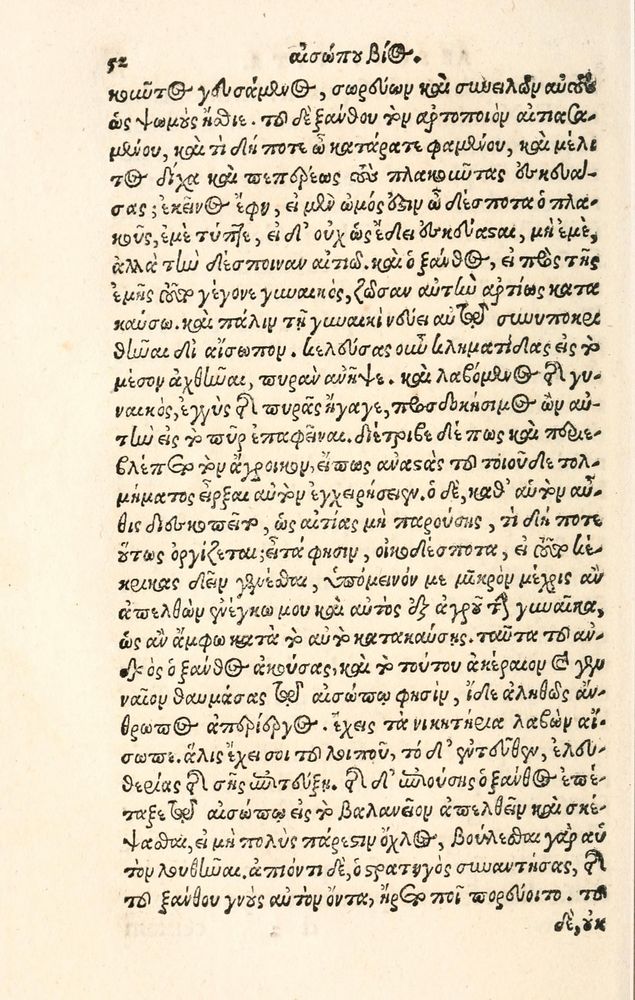 52 αἰσώπου βίος.
κοιῦτος γευσάμενος, σωρεύων καὶ συνειλῶν αὐτὸν
ὡς ψωμοὺς ἤσθιε. τοῦ δὲ ξάνθου τὸν ἀρτοποιὸν αἰτιασα-
μένου, καὶ τί δή ποτε ὦ κατάρατε φαμένου, καὶ μέλι
τος δίχα καὶ πεπέρεως τὸν πλακοῦντα ἐσκεύα-
σας; ἐκεῖνος ἔφη, εἰ μὲν ὠμός ἐστιν ὦ δέσποτα ὁ πλα-
κοῦς, ἐμὲ τύπτε, εἰ δ' οὐχ ὡς ἔδει ἐσκεύασαι, μὴ ἐμὲ,
ἀλλὰ τὴν δέσποιναν αἰτιῶ. καὶ ὁ ξάνθος, εἰ πρὸς τῆς
ἐμῆς τοῦτο γέγονε γυναικός, ζῶσαν αὐτὴν ἀρτίως κατα
καύσω. καὶ πάλιν τῇ γυναικὶ νεύει αὐτῷ συνυποκρι
θῆναι δι' αἴσωπον. κελεύσας οὖν κληματίδας εἰς τὸ
μέσον ἀχθῆναι, πυρὰν ἀνῆψε. καὶ λαβόμενος τῆς γυ-
ναικός, ἐγγὺς τῆς πυρᾶς ἤγαγε, προσδοκήσιμος ὢν αὐ-
τὴν εἰς τὸ πῦρ ἐπαφεῖναι. διέτριβε δέ πως καὶ περιέ-
βλέπετο τὸν ἄγροικον, εἴπως ἀναστὰς τοῦ τοιοῦδε τολ-
μήματος εἶρξαι αὐτὸν ἐγχειρήσειεν. ὁ δὲ, καθ' αὑτὸν αὖ-
θις διεσκοπεῖτο, ὡς αἰτίας μὴ παρούσης, τί δή ποτε
οὕτως ὀργίζεται; εἶτά φησιν, οἰκοδέσποτα, εἰ τοῦτο κέ-
κρικας δεῖν γενέσθαι, ὑπόμεινόν με μικρὸν μέχρις ἂν
ἀπελθὼν ἐνέγκω μου καὶ αὐτὸς ἐξ ἀγροῦ τὴν γυναῖκα,
ὡς ἂν ἄμφω κατὰ τὸ αὐτὸ κατακαύσῃς. ταῦτα τοῦ ἀν-
δρὸς ὁ ξάνθος ἀκούσας, καὶ τὸ τούτου ἀκέραιον καὶ γεν
ναῖον θαυμάσας τῷ αἰσώπῳ φησὶν, ἴδε ἀληθῶς ἄν-
θρωπος ἀπερίεργος. ἔχεις τὰ νικητήρια λαβὼν αἴ-
σωπε. ἅλις ἔχει σοι τοῦ λοιποῦ, τὸ δ' ἐντεῦθεν, ἐλευ-
θερίας τῆς σῆς ἐπιτεύξῃ. τῆς δ' ἐπιούσης ὁ ξάνθος ἐπέ-
ταξε τῷ αἰσώπῳ εἰς τὸ βαλανεῖον ἀπελθεῖν καὶ σκέ-
ψασθαι, εἰ μὴ πολὺς πάρεστιν ὄχλος, βούλεσθαι γὰρ αὐ
τὸν λουθῆναι. ἀπιόντι δὲ, ὁ στρατηγὸς συναντήσας, καὶ
τοῦ ξάνθου γνοὺς αὐτὸν ὄντα, ἤρετο ποῖ πορεύοιτο. τοῦ
δὲ, οὐκ